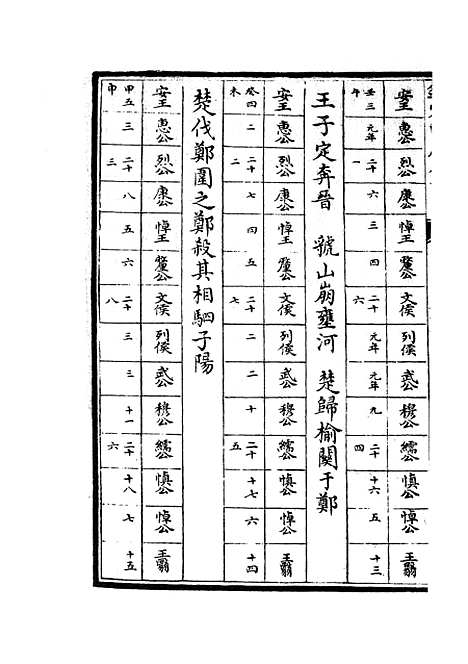 安王 惠公 烈公 康公 悼王 釐公 文侯 列侯 武公 穆公 繻公 慎公 悼公 王翳
壬午 三 元年 二十一 六 三 四 二十六 元年 元年 九 二十四 十六 五 十三
王子定奔晉 虢山崩壅河 楚歸榆關于鄭
安王 惠公 烈公 康公 悼王 釐公 文侯 列侯 武公 穆公 繻公 慎公 悼公 王翳
癸未 四 二 二十二 七 四 五 二十七 二 二 十 二十五 十七 六 十四
楚伐鄭圍之鄭殺其相駟子陽
安王 惠公 烈公 康公 悼王 釐公 文侯 列侯 武公 穆公 繻公 慎公 悼公 王翳
甲申 五 三 二十三 八 五 六 二十八 三 三 十一 二十六 十八 七 十五